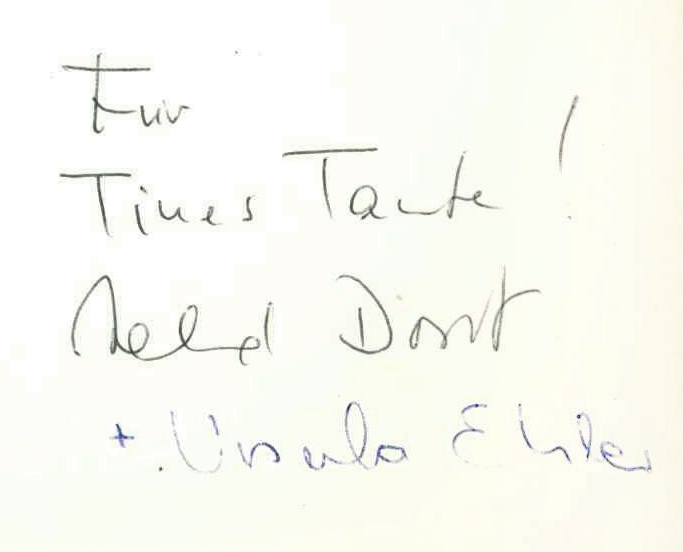 Für
Tines Tante!
Tankred Dorst
+ Ursula Ehler